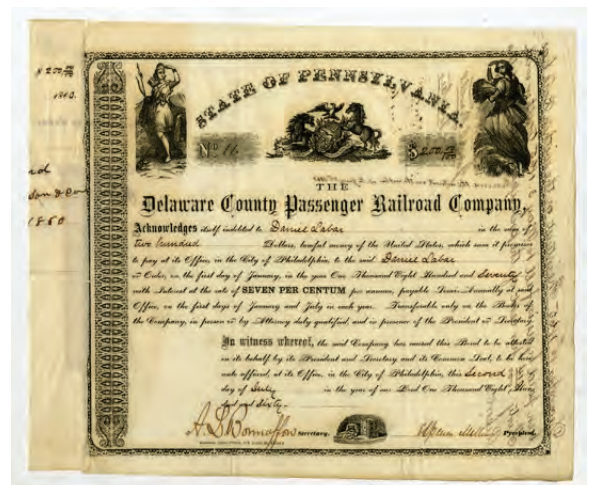 $200
1860.
STATE OF PENNSYLVANIA
No 16 $200
THE
Delaware County Passenger Railroad Company,
Acknowledges itself indebted to Daniel Labar in the sum of
two hundred Dollars, lawful money of the United States, which sum it promises
to pay at its Office, in the City of Philadelphia, to the said Daniel Labar
or Order, on the first day of January, in the year One Thousand Eight Hundred and Seventy
with Interest at the rate of SEVEN PER CENTUM per annum, payable Semi-Annually at said
Office, on the first days of January and July in each year. Transferable only on the Books of
the Company, in person or by Attorney duly qualified, and in presence of the President or Secretary.
In witness whereof, the said Company has caused this Bond to be attested
on its behalf by its President and Secretary and its Common Seal, to be here
unto affixed, at its Office, in the City of Philadelphia, this Second
day of July in the year of our Lord One Thousand Eight Hun-
dred and Sixty.
A. S. Bonnaffon Secretary. President.